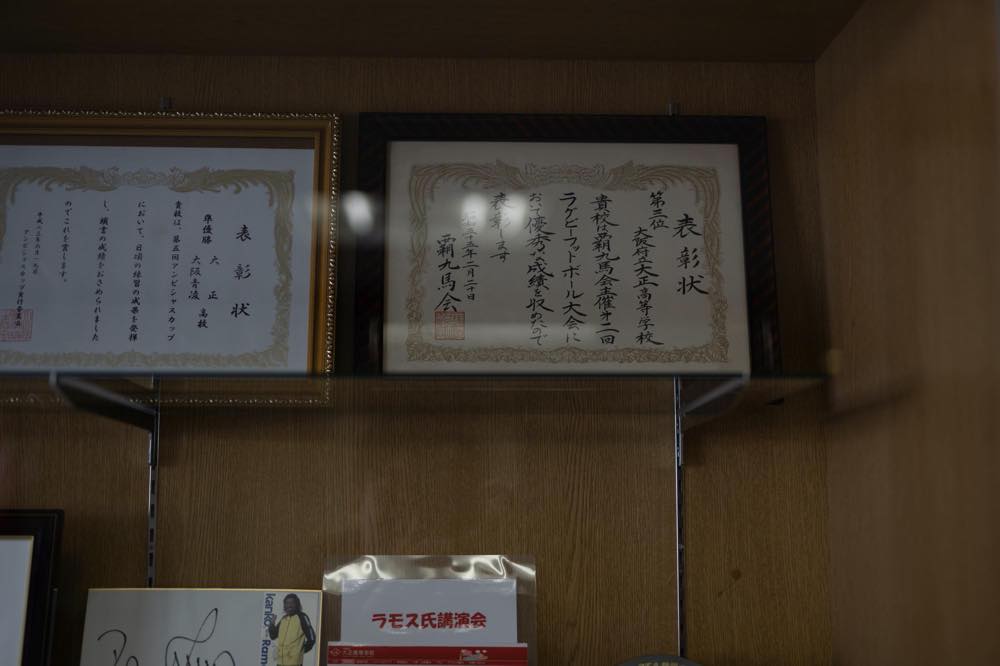 表彰状
第三位
大阪府立大正高等学校
貴校は覇九馬会主催第二回
ラグビーフットボール大会に
おいて優秀な成績を収めたので
表彰します
五年二月二十日
覇九馬会
表彰状
準優勝 大正
大阪青凌 高校
貴殿は、第五回アンビシャスカップ
において、日頃の練習の成果を発揮
し、頭書の成績をおさめられました
のでこれを賞します。
アンビシャスカップ実行委員会
Kanko
Ram
ラモス氏講演会